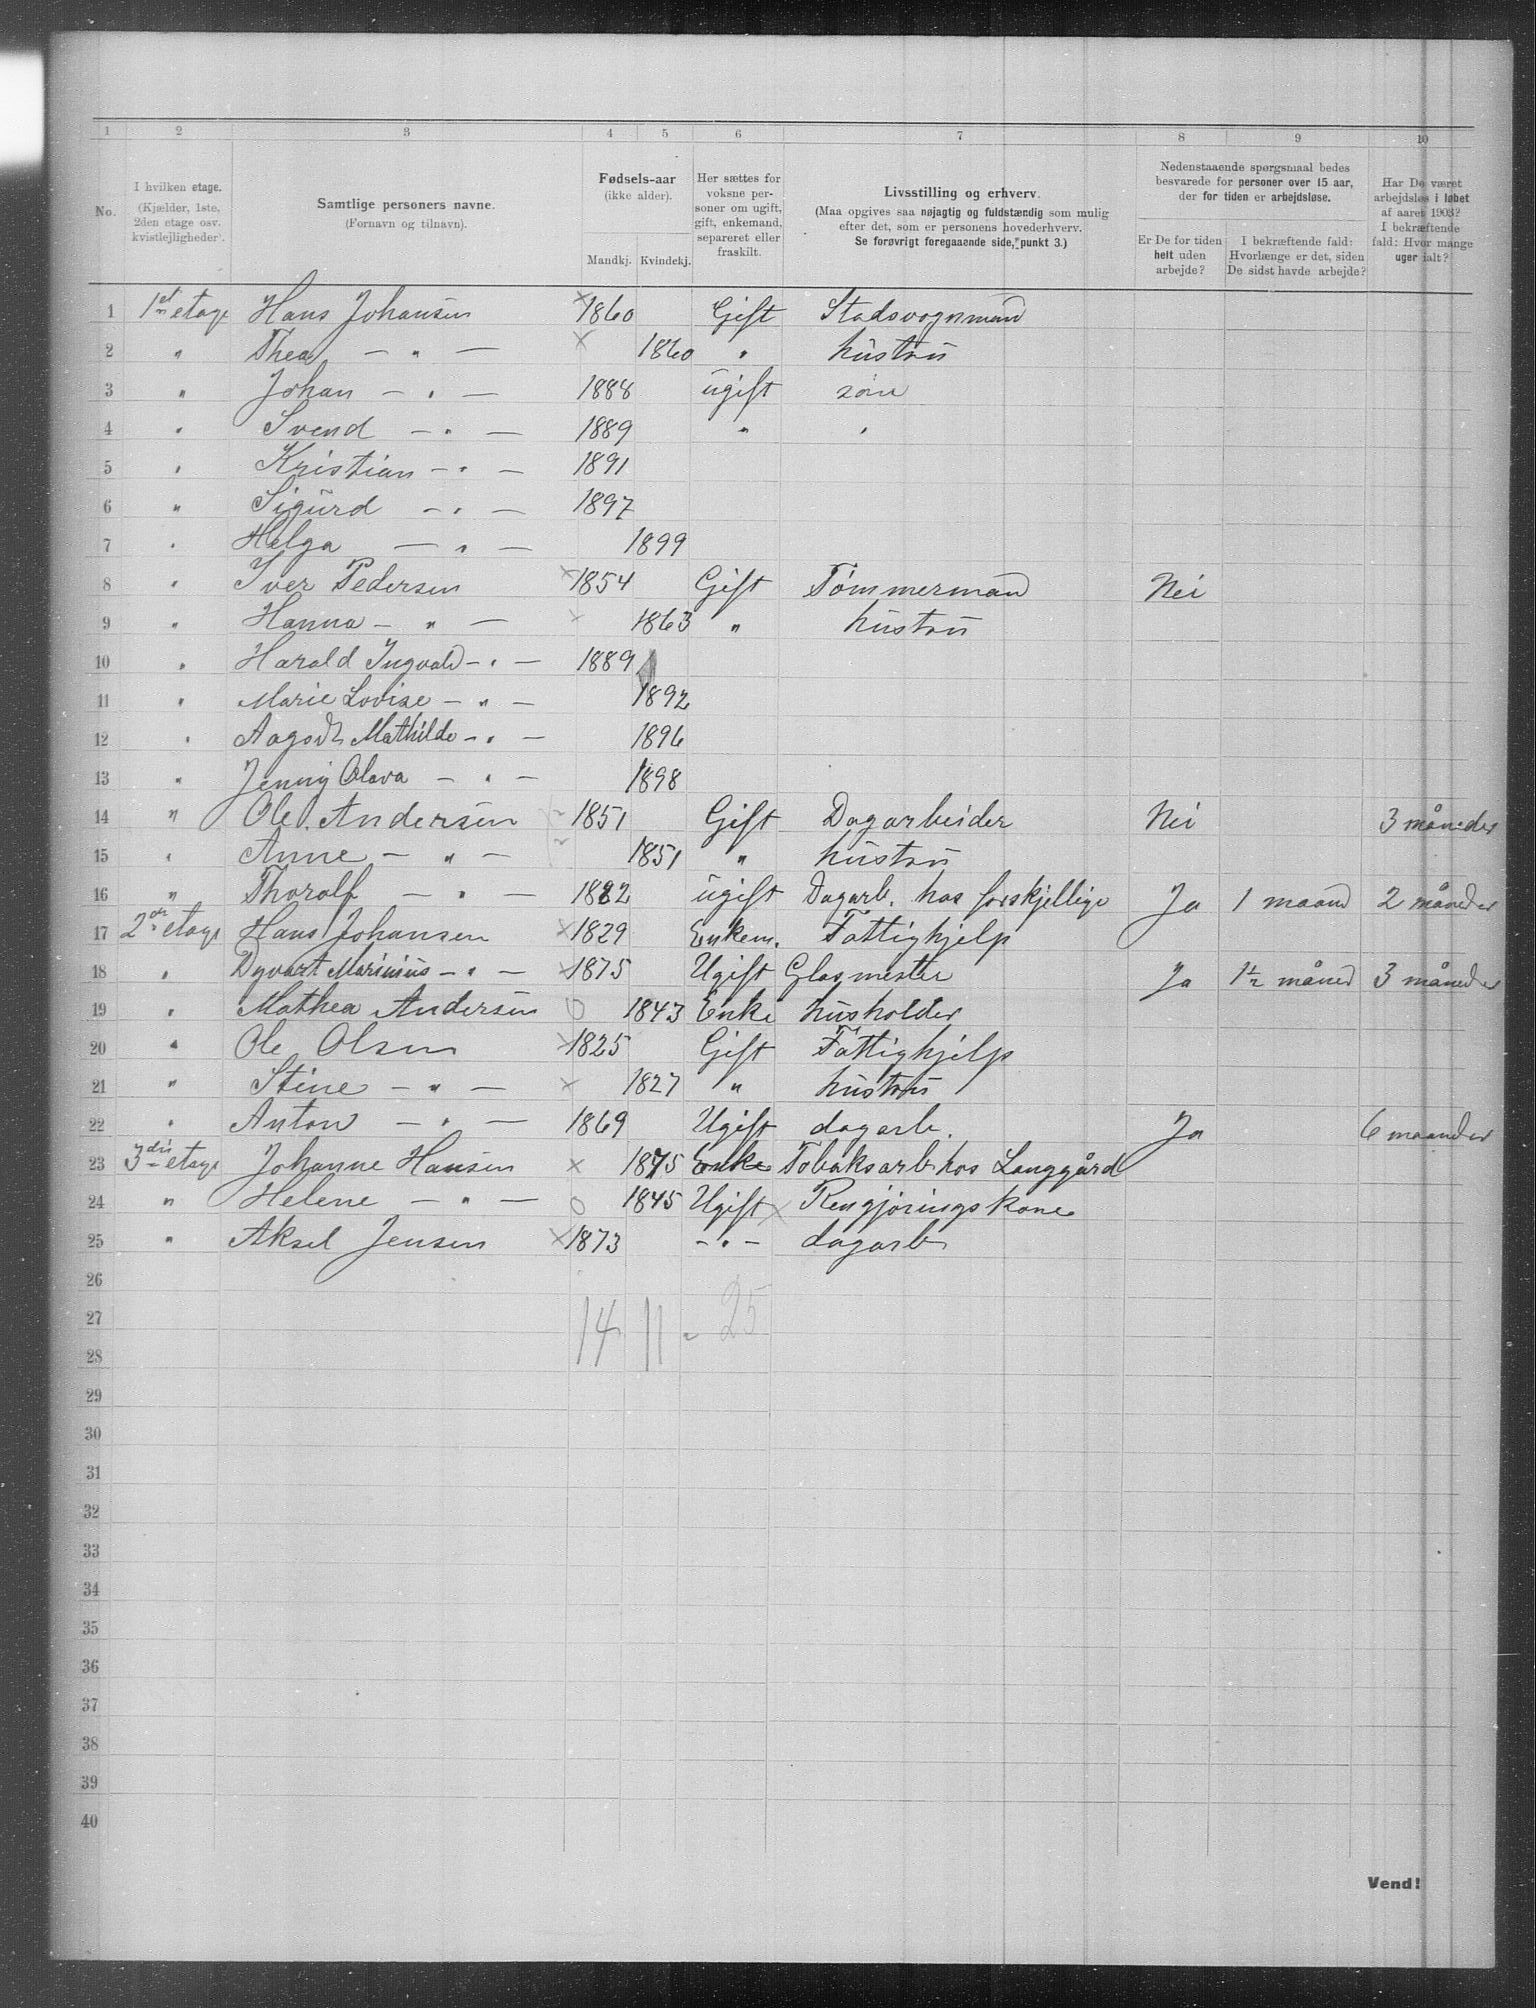 1 2 3 4 5 6 7 8 9 10
No.
I hvilken etage.
(Kjælder, 1ste,
2den etage osv.
kvistlejligheder).
Samtlige personers navne.
(Fornavn og tilnavn).
Fødsels-aar
(ikke alder).
Mandkj. Kvindekj.
Her sættes for
voksne per-
soner om ugift,
gift, enkemand,
separeret eller
fraskilt.
Livsstilling og erhverv.
(Maa opgives saa nøjagtig og fuldstændig som mulig
efter det, som er personens hovederhverv.
Se forøvrigt foregaaende side, punkt 3.)
Nedenstaaende spørgsmaal bedes
besvarede for personer over 15 aar,
der for tiden er arbejdsløse.
Er De for tiden
helt uden
arbejde?
I bekræftende fald:
Hvorlænge er det, siden
De sidst havde arbejde?
Har De været
arbejdsløs i løbet
af aaret 1903?
I bekræftende
fald: Hvor mange
uger ialt?
1 1st etage Hans Johansen × 1860 Gift Stadsvognmand
2 " Thea — " — × 1860 " hustru
3 " Johan — " — 1888 ugift søn
4 " Svend — " — 1889 " "
5 " Kristian — " — 1891
6 " Sigurd — " — 1897
7 " Helga — " — 1899
8 " Iver Pedersen × 1854 Gift Tømmermand Nei
9 " Hanna — " — × 1863 " hustru
10 " Harald Ingvald — " — 1889
11 " Marie Lovise — " — 1892
12 " Mathilde — " — 1896
13 " Jenny Olava — " — 1898
14 " Ole Andersen 1851 Gift Dagarbeider Nei 3 måneder
15 " Anne — " — 1851 " hustru
16 " Thorolf — " — 1882 ugift Dagarb. hos forskjellige Ja 1 maand 2 måneder
17 2den etage Hans Johansen × 1829 Enkem. Fattighjelp
18 " Dyvart Marinius — " — × 1875 Ugift Glasmester Ja 1½ måned 3 måneder
19 " Mathea Andersen 0 1843 Enke husholder
20 " Ole Olsen × 1825 Gift Fattighjelp
21 " Stine — " — × 1827 " hustru
22 " Anton — " — 1869 Ugift dagarb. Ja 6 maander
23 3die etage Johanne Hansen × 1875 Enke Tobaksarb hos Langgård
24 " Helene — " — 0 1845 Ugift × Rengjøringskone
25 " Aksel Jensen × 1873 — " — dagarb
26
27 14 11 = 25
28
29
30
31
32
33
34
35
36
37
38
39
40
Vend!